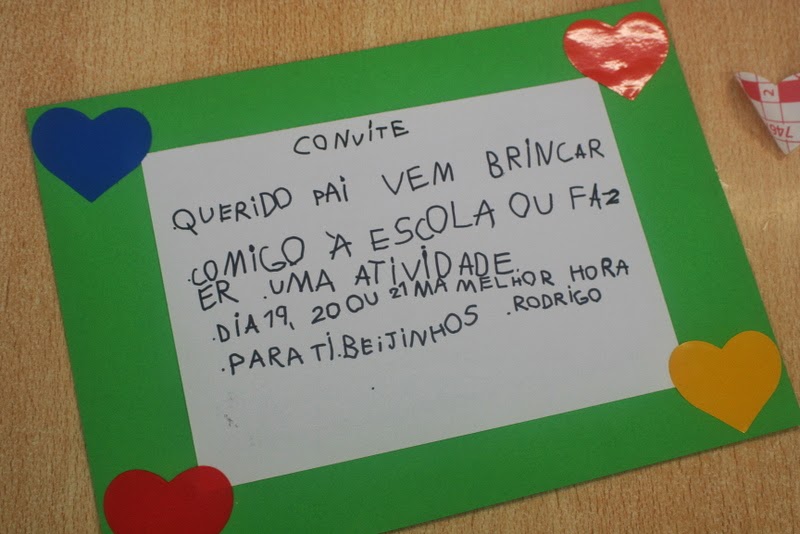 CONVITE
QUERIDO PAI VEM BRINCAR
.COMIGO À ESCOLA OU FAZ
ER .UMA ATIVIDADE.
.DIA 19, 20 OU 21 MA MELHOR HORA
.PARA TI.BEIJINHOS .RODRIGO
2
746